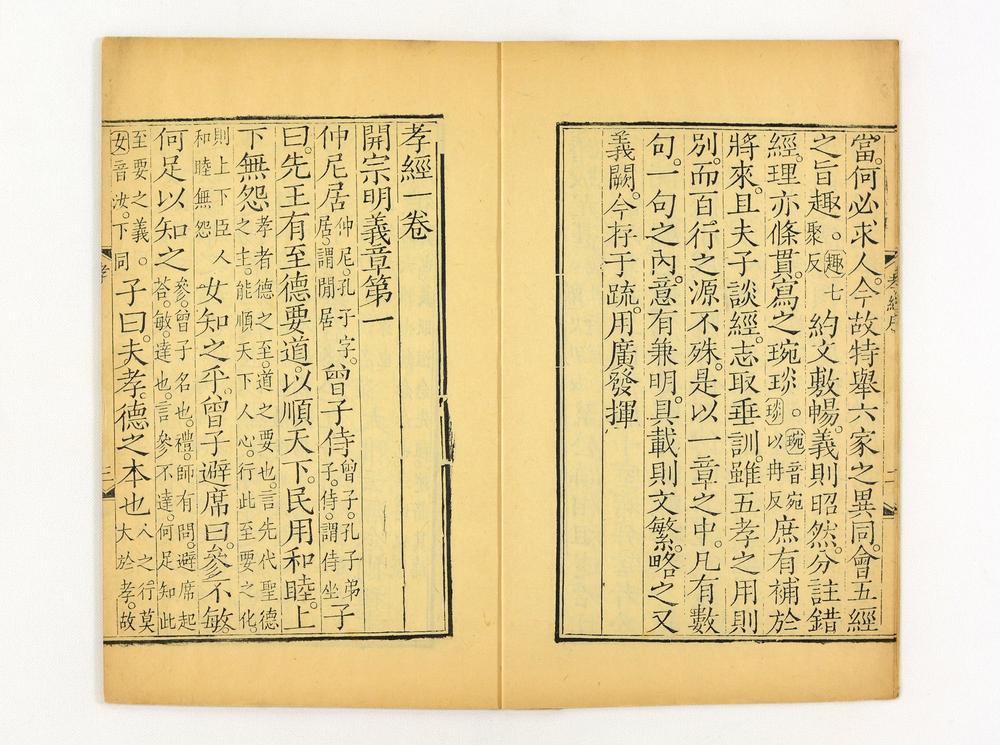 孝經序
二
當。何必求人。今故特舉六家之異同。會五經
之旨趣。趣七聚反約文敷暢。義則昭然。分註錯
經。理亦條貫。寫之琬琰。琬音宛琰以冉反庶有補於
將來。且夫子談經。志取垂訓。雖五孝之用則
別。而百行之源不殊。是以一章之中。凡有數
句。一句之內。意有兼明。具載則文繁。略之又
義闕。今存于疏。用廣發揮
孝經一卷
開宗明義章第一
仲尼居仲尼。孔子字。居。謂閒居曾子侍曾子。孔子弟子。侍。謂侍坐子
曰。先王有至德要道。以順天下。民用和睦。上
下無怨孝者德之至。道之要也。言先代聖德之主。能順天下人心。行此至要之化。
則上下臣人和睦無怨女知之乎。曾子避席曰。參不敏。
何足以知之參。曾子名也。禮。師有問。避席起荅。敏。達也。言參不達。何足知此
至要之義。女音汝。下同子曰。夫孝。德之本也人之行莫大於孝。故
孝
三